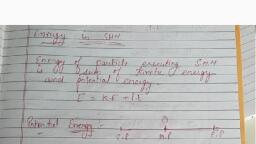 Energy in SHM
Energy of particle executing SHM
is sum of kinetic energy
and potential energy.
E = K.E +
Potential Energy :-
O
E.P M.P E.P